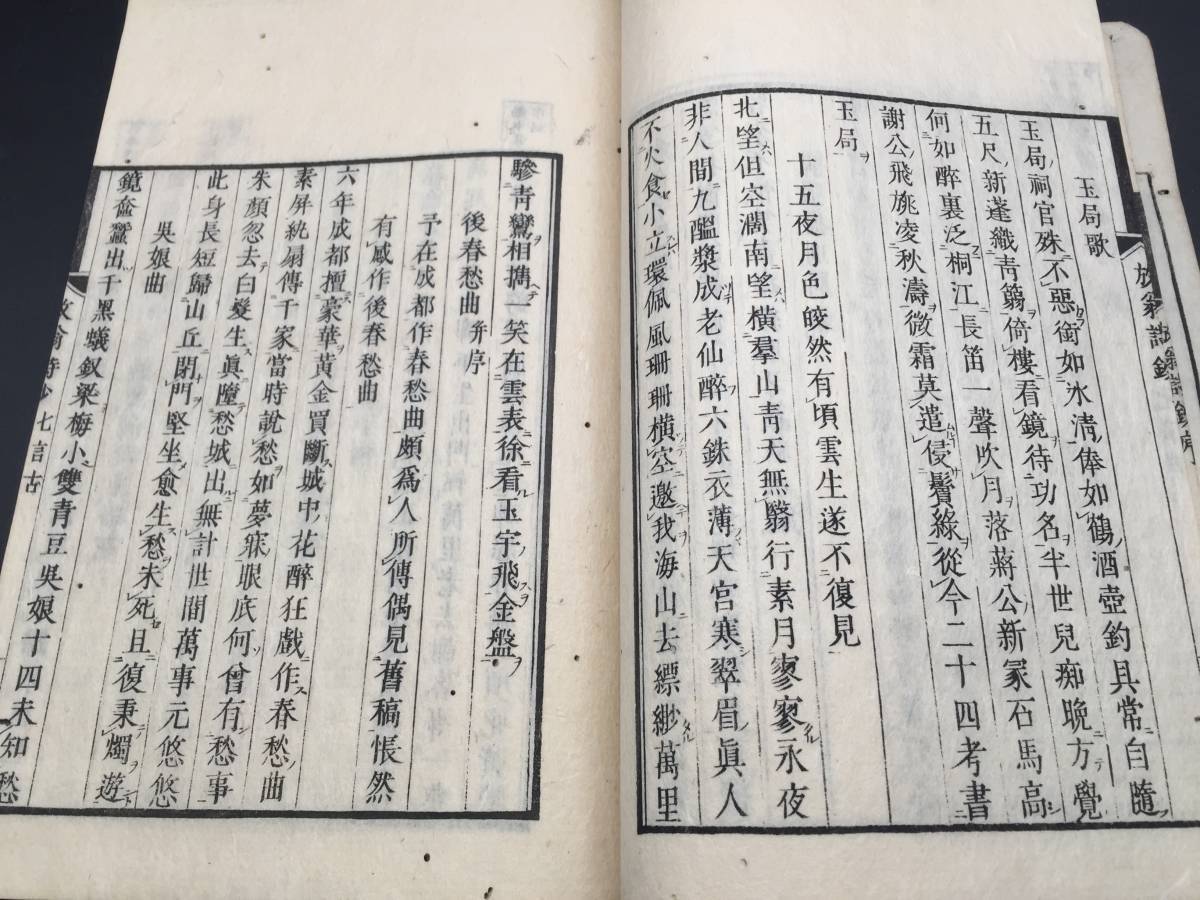 玉局歌
玉局祠官殊不惡銜如氷淸俸如鶴酒壺釣具常自隨
五尺新蓬織靑篛倚樓看鏡待功名半世兒痴晩方覺
何如醉裏泛桐江長笛一聲吹月落蔣公新冢石馬高
謝公飛旐凌秋濤微霜莫遣侵鬢綠從今二十四考書
玉局
十五夜月色皎然有頃雲生遂不復見
北望但空濶南望橫羣山靑天無翳行素月寥寥永夜
非人間九醞漿成老仙醉六銖衣薄天宮寒翠眉眞人
不火食小立環佩風珊珊橫空邀我海山去縹緲萬里
驂靑鸞相攜一笑在雲表徐看玉宇飛金盤
後春愁曲 幷序
予在成都作春愁曲頗爲人所傳偶見舊稿悵然
有感作後春愁曲
六年成都擅豪華黃金買斷城中花醉狂戲作春愁曲
素屛紈扇傳千家當時說愁如夢寐眼底何曾有愁事
朱顏忽去白髮生眞墮愁城出無計世間萬事元悠悠
此身長短歸山丘閉門堅坐愈生愁未死且復秉燭遊
吳娘曲
鏡奩蠶出千黑蟻釵梁梅小雙青豆吳娘十四未知愁
放翁詩鈔 七言古